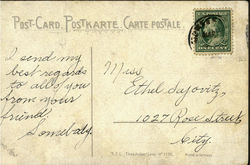 POST-CARD. POSTKARTE. CARTE POSTALE.
I send my
best regards
to all of you
from your
friend,
Somebody.
Miss
Ethel
1027 Rose Street
City.